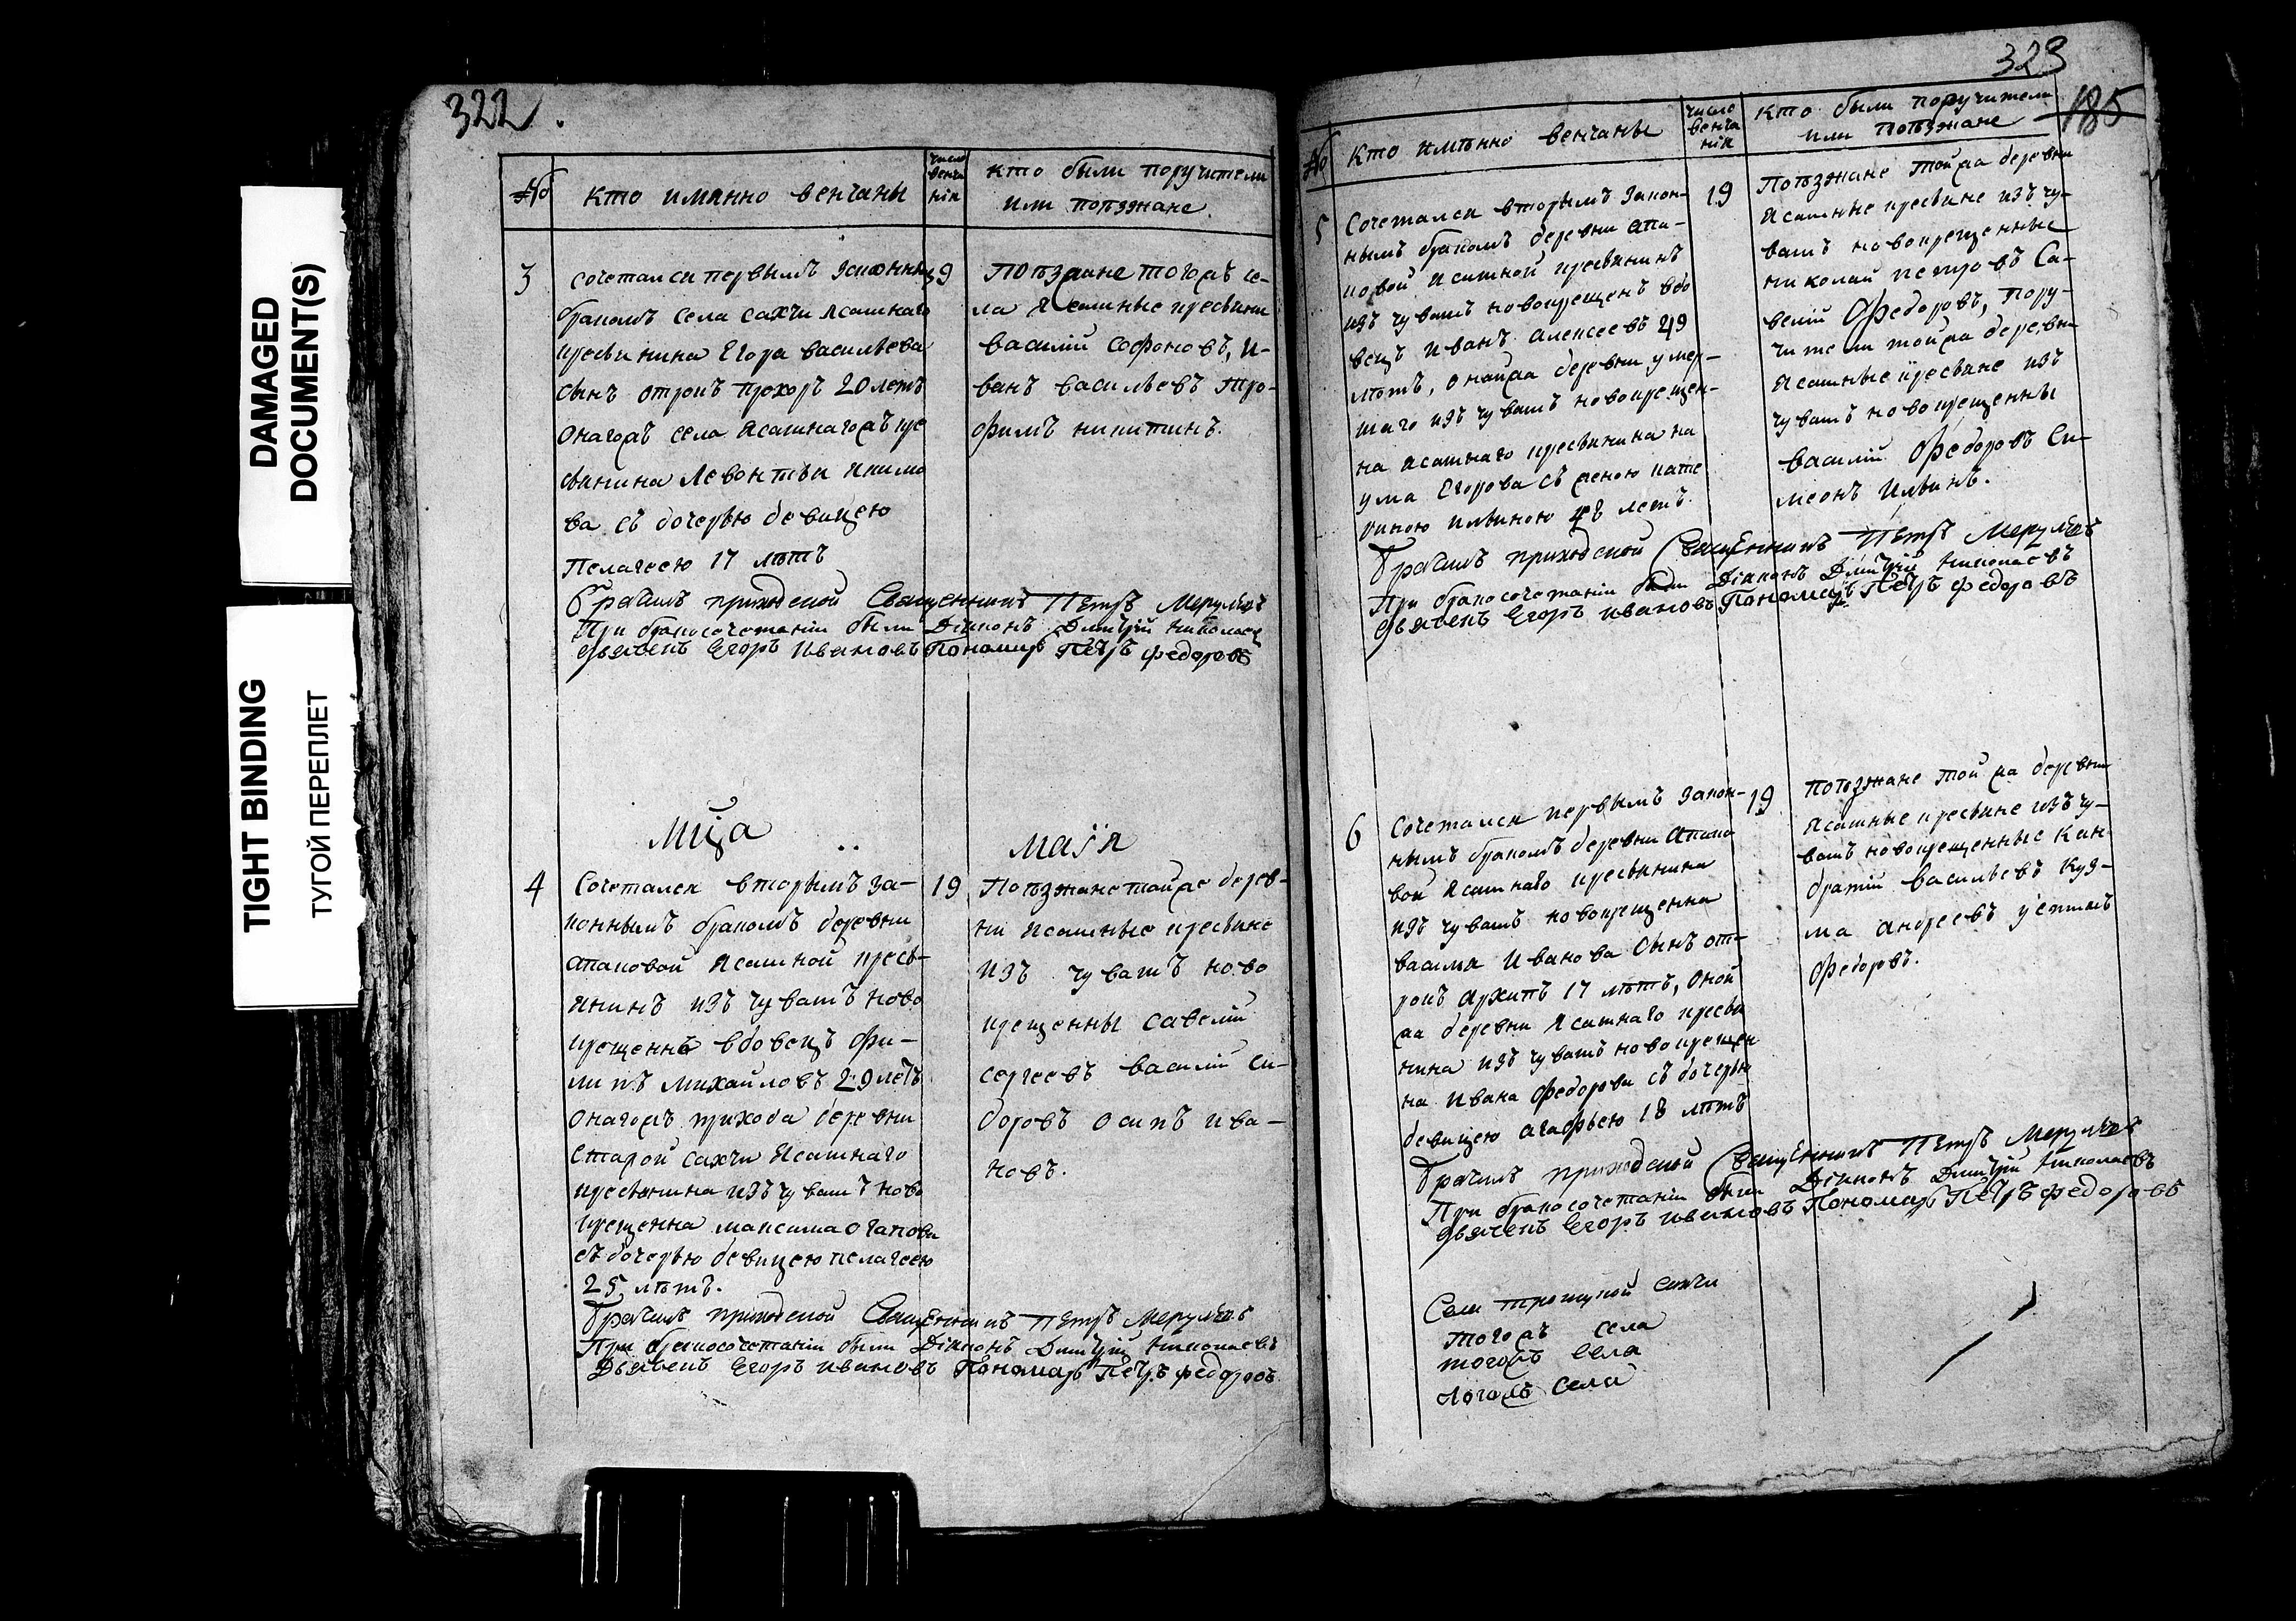 DAMAGED
DOCUMENT(S)
TIGHT BINDING
ТУГОЙ ПЕРЕПЛЕТ
322
№
кто имянно венчаны
число
венча
нія
кто были поручители
или поѣзжане.
3
сочетался первымъ законны
9
бракомъ села сахчи ясашнаго
кресьянина Егора васильева
сынъ отрокъ прохоръ 20 летъ
онагожъ села ясашнагожъ кре
сьянина Левонтья
ва съ дочерью девицею
Пелагеею 17 лѣтъ
поѣзжане тогожъ се-
ла ясашные кресьяни
василій софоновъ, и-
ванъ васильевъ тро-
фимъ никитинъ.
бракомъ приходской Священникъ Петръ
При бракосочетаніи были Діаконъ Дмитрій Николаев
дьячекъ Егоръ Ивановъ Пономарь Петръ Федоровъ
мца маіа
4
Сочетался вторымъ за-
19
коннымъ бракомъ деревни
апаковой ясашной кресь-
янинъ изъ чувашъ ново
крещенъ вдовецъ фи-
липъ михайловъ 29 летъ
онагожъ прихода деревни
Старой сахчи ясашнаго
кресьянина изъ чувашъ ново
крещенна максима
съ дочерью девицею пелагеею
25 лѣтъ.
Поѣзжане тойже дерев-
ни ясашные кресьяне
изъ чувашъ ново
крещенны савелій
сергеевъ василій си-
доровъ осипъ ива-
новъ.
бракомъ приходской Священникъ Петръ
При бракосочетаніи были Діаконъ Дмитрій Николаевъ
Дьячекъ Егоръ Ивановъ Пономарь Петръ Федоровъ
323
185
№
кто имѣнно венчаны
число
венча
нія
кто были поручители
или поѣзжане
5
Сочетался вторымъ закон-
19
нымъ бракомъ деревни апа-
ковой ясашной кресьянинъ
изъ чувашъ новокрещенъ вдо
вецъ иванъ алексеевъ 49
лѣтъ, онойжа деревни умер-
шаго изъ чувашъ новокрещен-
на ясашнаго кресьянина на
ума Егорова съ женою кате
риною ильиною 48 летъ.
Поѣзжане тойжа деревни
ясашные кресьяне изъ чу-
вашъ новокрещенные
николай петровъ Са-
велій Федоровъ, пору-
чители тойжа деревни
ясашные кресьяне изъ
чувашъ новокрещенны
василій Федоровъ Си-
меонъ Ильинъ.
бракомъ приходской Священникъ Петръ
При бракосочетаніи были Діаконъ Дмитрій Николаевъ
дьячекъ Егоръ Ивановъ Пономарь Петръ Федоровъ
6
Сочетался первымъ закон-
19
нымъ бракомъ деревни апако
вой ясашнаго кресьянина
изъ чувашъ новокрещенна
василья Иванова сынъ от-
рокъ архипъ 17 лѣтъ, оной
жа деревни ясашнаго кресья
нина изъ чувашъ новокрещен
на ивана Федорова съ дочерью
девицею агафьею 18 лѣтъ
поѣзжане той жа деревни
ясашные кресьяне изъ чу-
вашъ новокрещенные кан-
дратій васильевъ Куз-
ма андреевъ устинъ
Федоровъ.
бракомъ приходской Священникъ Петръ
При бракосочетаніи были Діаконъ Дмитрій Николаевъ
дьячекъ Егоръ Ивановъ Пономарь Петръ Федоровъ
Села троицкой сахчи
тогожъ села
тогожъ села
тогожъ села